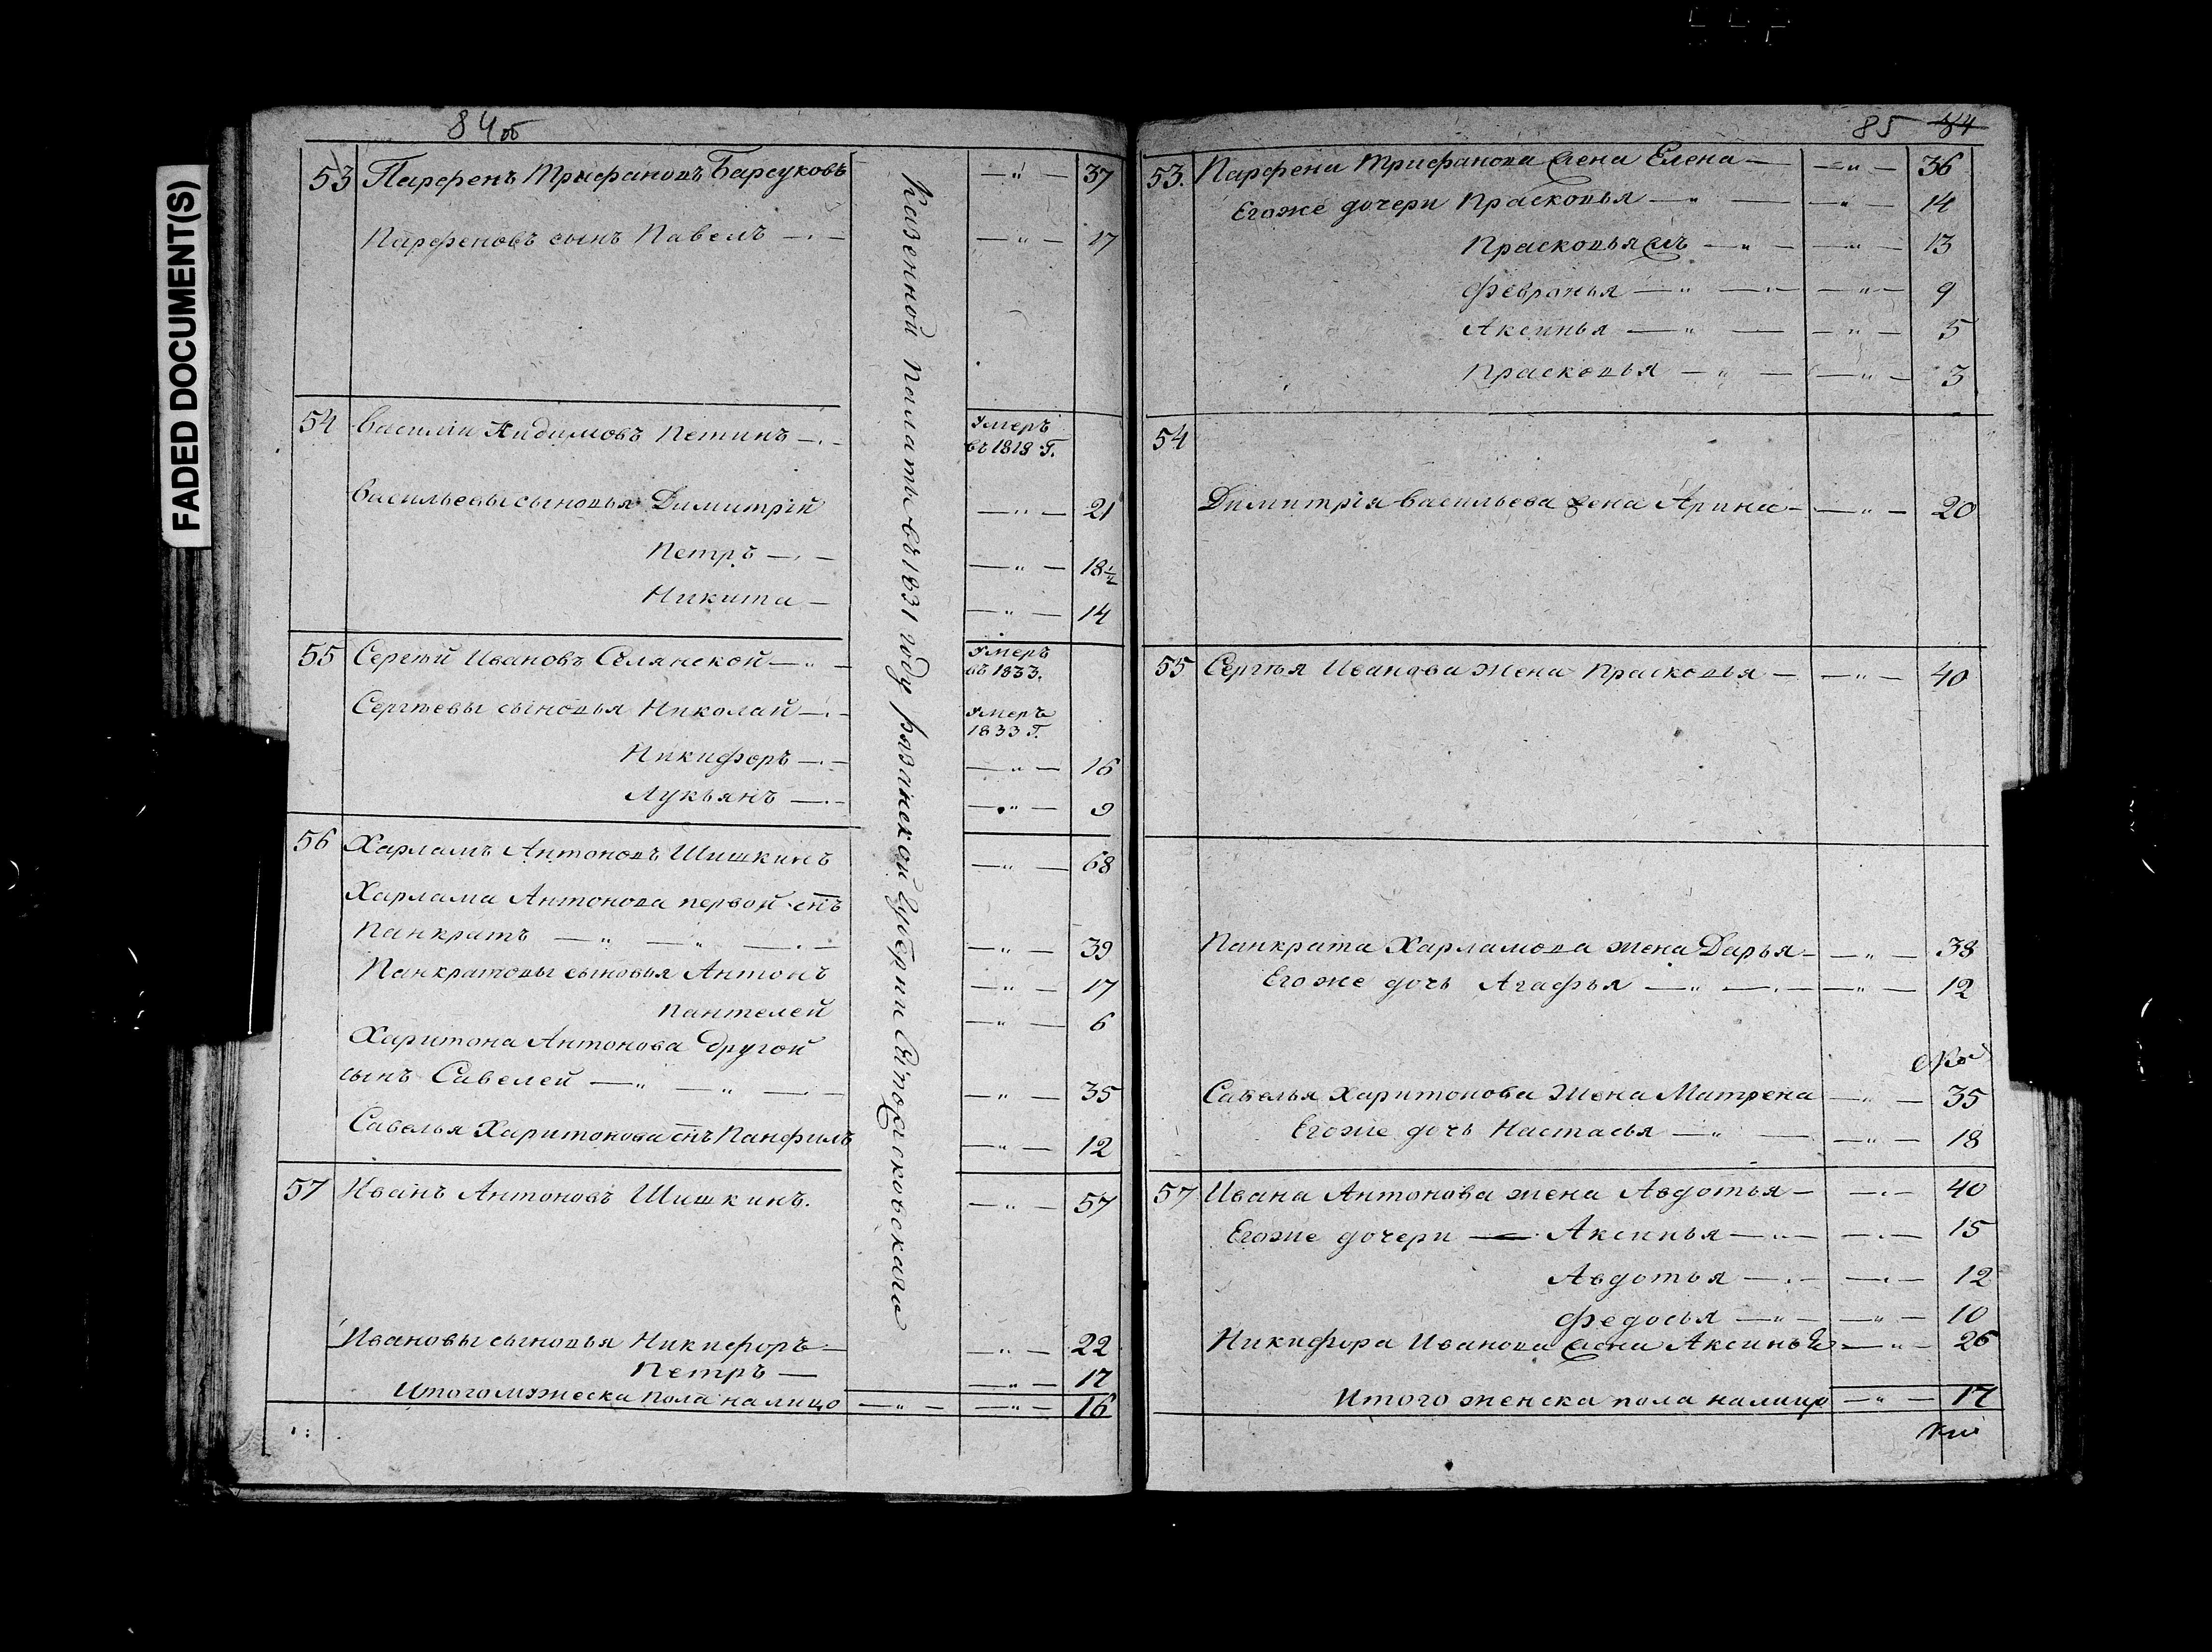 FADED DOCUMENT(S)
84об
53 Парфенъ Трифановъ Барсуковъ —"— 37
Парфеновъ сынъ Павелъ —"— 17
54 Василіи Аидимовъ Петинъ Умеръ
въ 1828 Г.
Васильевы сыновья Димитрій —"— 21
Петръ —"— 18½
Никита —"— 14
55 Сергѣй Ивановъ Селянской —"— Умеръ
въ 1833.
Сергѣевы сыновья Николай Умеръ
1833 Г.
Никифоръ —"— 16
Лукьянъ —"— 9
56 Харламъ Антоновъ Шишкинъ —"— 68
Харлама Антонова первой снъ
Панкратъ —"— —"— 39
Панкратовы сыновья Антонъ —"— 17
Пантелей —"— 6
Харитона Антонова другой
сынъ Савелей —"— —"— 35
Савелья Харитонова снъ Панфилъ —"— 12
57 Иванъ Антоновъ Шишкинъ. —"— 57
Ивановы сыновья Никифоръ —"— 22
Петръ —"— 17
Итого мужеска пола на лицо —"— —"— 16
Казенной палаты въ 1831 году рязанской губерніи
85 84
53. Парфена Трифанова жена Елена —"— 36
Егоже дочери Прасковья —"— 14
Прасковья —"— 13
Февронья —"— 9
Аксинья —"— 5
Прасковья —"— 3
54
Димитрія Васильева жена Арина —"— 20
55 Сергѣя Иванова жена Прасковья —"— 40
Панкрата Харламова жена Дарья —"— 38
Егоже дочь Агафья —"— 12
Савелья Харитонова жена Матрена —"— 35
Егоже дочь Настасья —"— 18
57 Ивана Антонова жена Авдотья —"— 40
Егоже дочери — Аксинья —"— 15
Авдотья —"— 12
Федосья —"— 10
Никифора Иванова жена Аксинья —"— 26
Итого женска пола налицо —"— 17